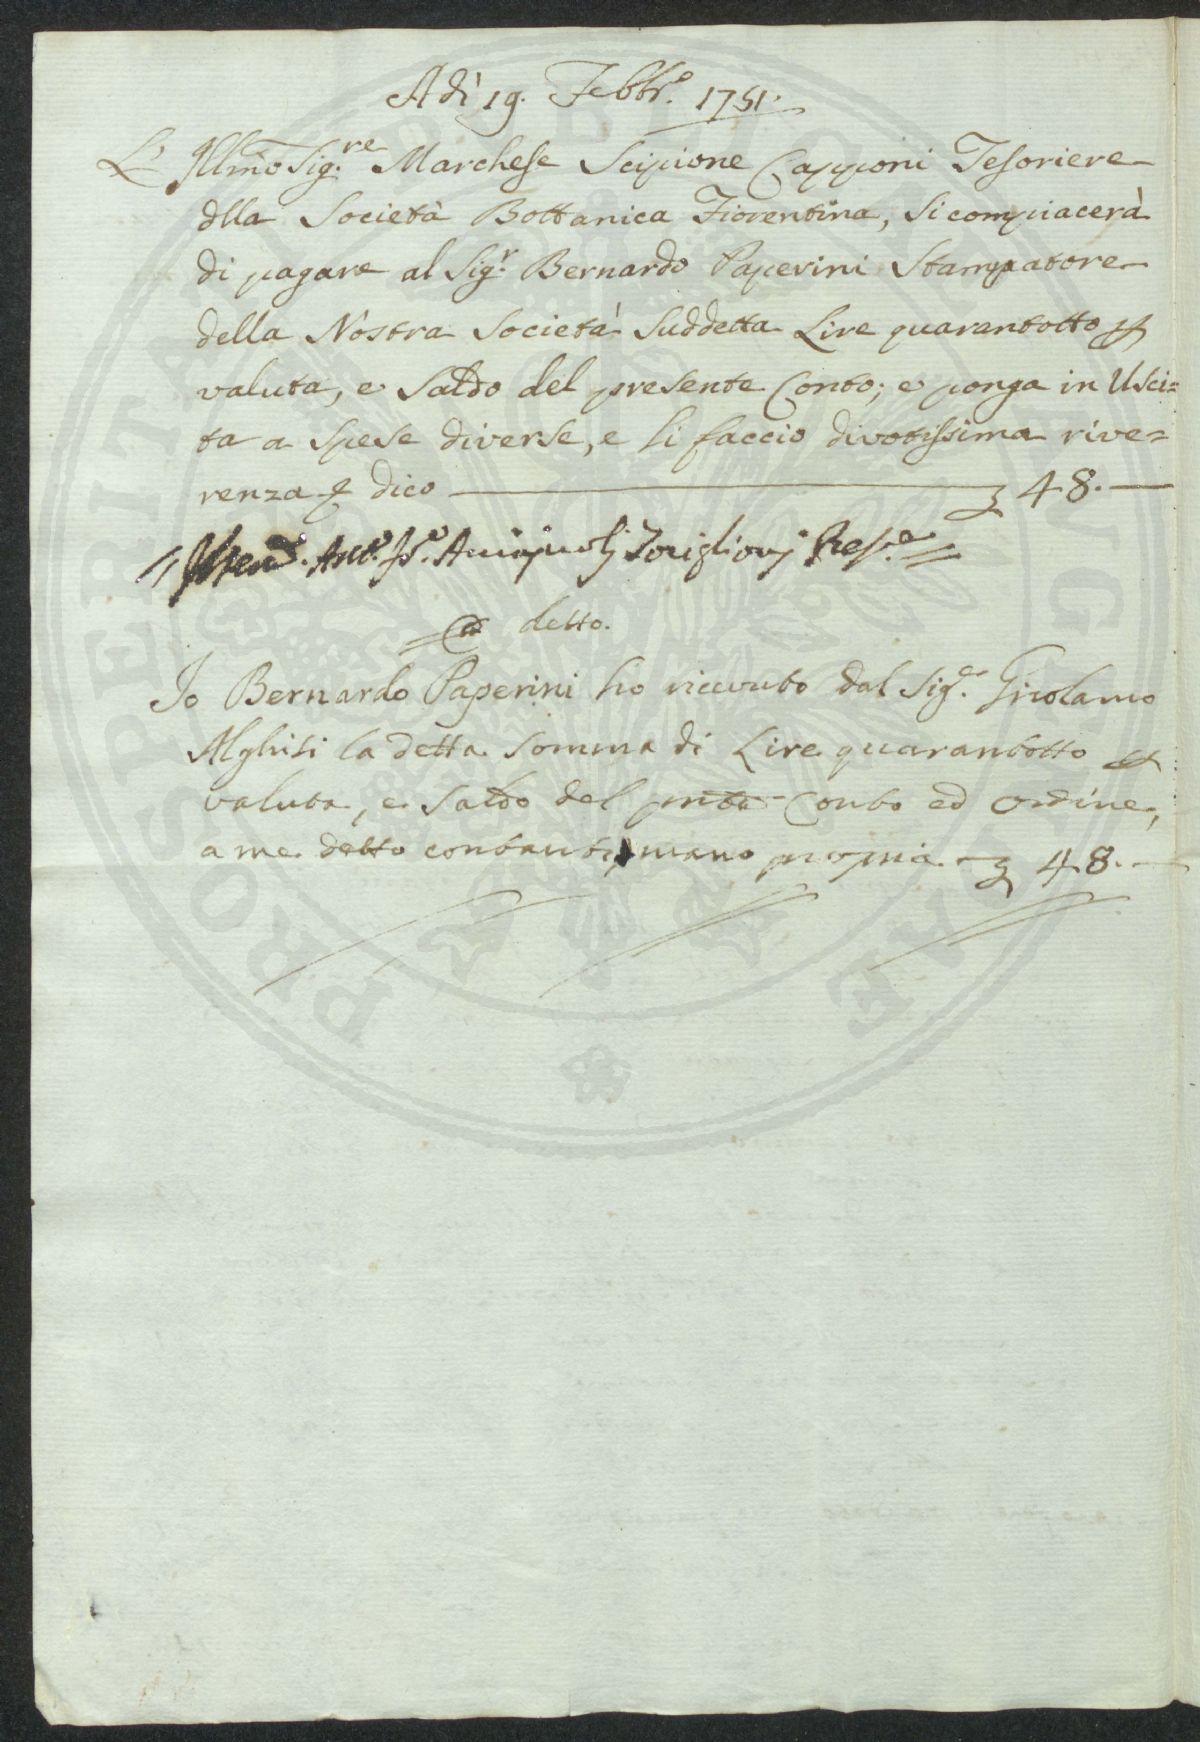 Adì 19. Febbr.º 1751.
L' Illmo Sig.re Marchese Scipione Capponi Tesoriere
dlla Società Bottanica Fiorentina, si compiacerà
di pagare al Sig.r Bernardo Paperini Stampatore
della Nostra Società Suddetta Lire quarantotto p
valuta, e Saldo del presente Conto; e ponga in Usci=
ta a Spese diverse, e li faccio divotissima rive=
renza p dico — 48. —
Ant.º Fr.º Acciajuoli Torriglioni Pres.e
detto.
Io Bernardo Paperini ho ricevuto dal Sig.e Girolamo
Alghisi la detta Somma di Lire quarantotto p
valuta, e Saldo del pnte Conto ed ordine,
a me detto contanti, mano propria — 48. —
PROSPERITATI PUBLICAE AUGENDAE